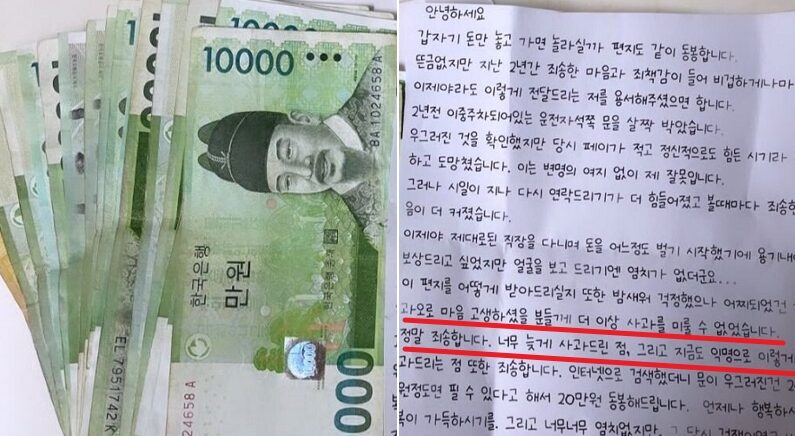 10000
BA1024658A
한국은행
만원
한국은행 총재
EL7951742K
000
안녕하세요
갑자기 돈만 놓고 가면 놀라실까 편지도 같이 동봉합니다.
뜬금없지만 지난 2년간 죄송한 마음과 죄책감이 들어 비겁하게나마
이제야라도 이렇게 전달드리는 저를 용서해주셨으면 합니다.
2년전 이중주차되어있는 운전자석쪽 문을 살짝 박았습니다.
우그러진 것을 확인했지만 당시 페이가 적고 정신적으로도 힘든 시기라
하고 도망쳤습니다. 이는 변명의 여지 없이 제 잘못입니다.
그러나 시일이 지나 다시 연락드리기가 더 힘들어졌고 볼때마다 죄송한
음이 더 커졌습니다.
이제야 제대로된 직장을 다니며 돈을 어느정도 벌기 시작했기에 용기내어
보상드리고 싶었지만 얼굴을 보고 드리기엔 염치가 없더군요...
이 편지를 어떻게 받아드리실지 또한 밤새워 걱정했으나 어찌되었건
과오로 마음 고생하셨을 분들께 더 이상 사과를 미룰 수 없었습니다.
정말 죄송합니다. 너무 늦게 사과드린 점, 그리고 지금도 익명으로 이렇게
과드리는 점 또한 죄송합니다. 인터넷으로 검색했더니 문이 우그러진건 2
원정도면 필 수 있다고 해서 20만원 동봉해드립니다. 언제나 행복하시
복이 가득하시기를. 그리고 너무너무 염치없지만